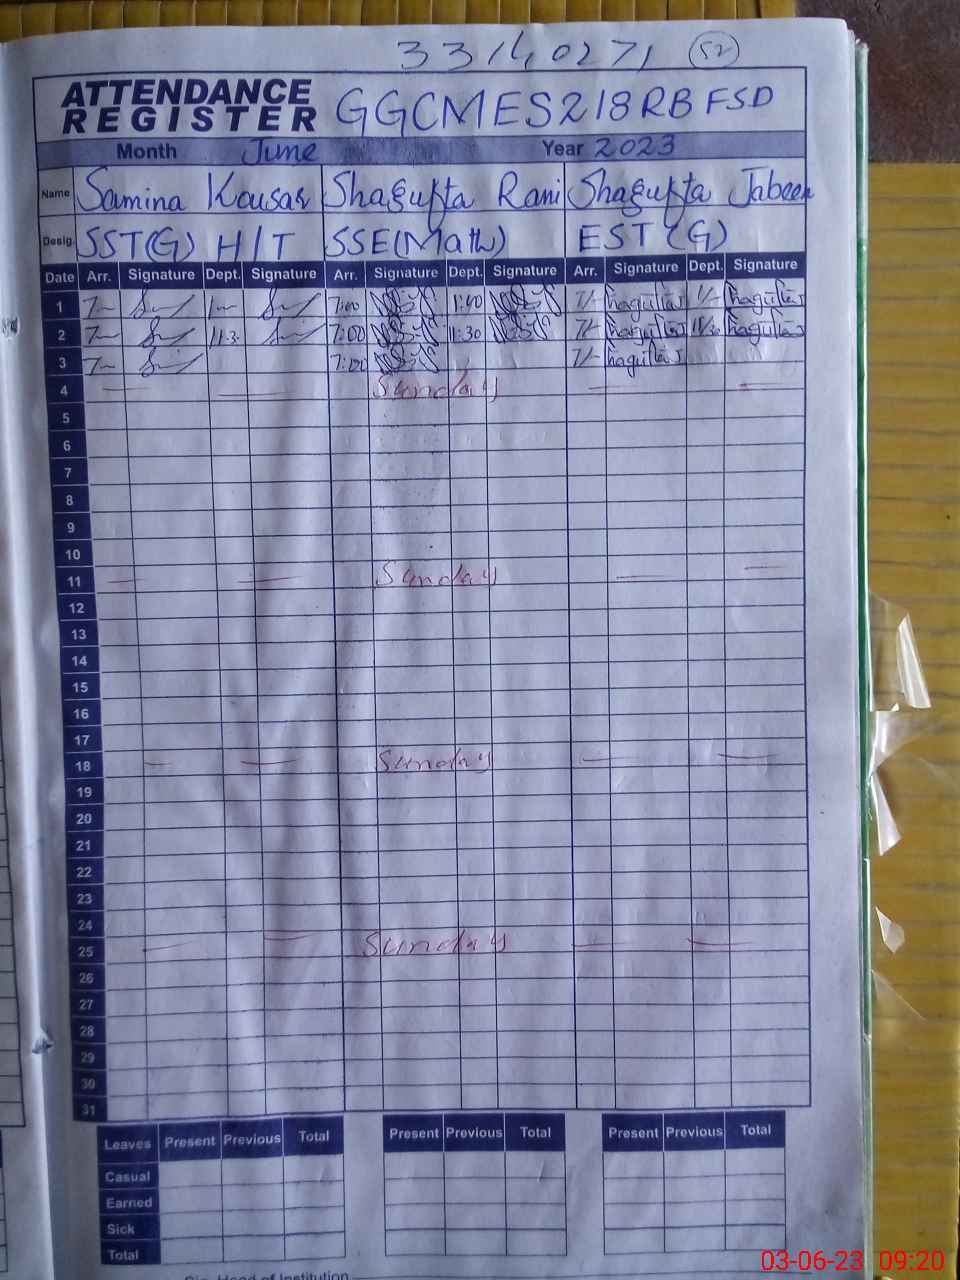 33140271 52
ATTENDANCE
REGISTER GGCMES218RB FSD
Month June Year 2023
Name Samina Kousar Shagufta Rani Shagufta Jabeen
Desig. SST(G) H/T SSE(Math) EST (G)
Date Arr. Signature Dept. Signature Arr. Signature Dept. Signature Arr. Signature Dept. Signature
1 7:00 1:40
2 7:00 11:30
3 7:00
4 Sunday
5
6
7
8
9
10
11 Sunday
12
13
14
15
16
17
18 Sunday
19
20
21
22
23
24
25 Sunday
26
27
28
29
30
31
Leaves Present Previous Total Present Previous Total Present Previous Total
Casual
Earned
Sick
Total
Sig. Head of Institution
03-06-23 09:20